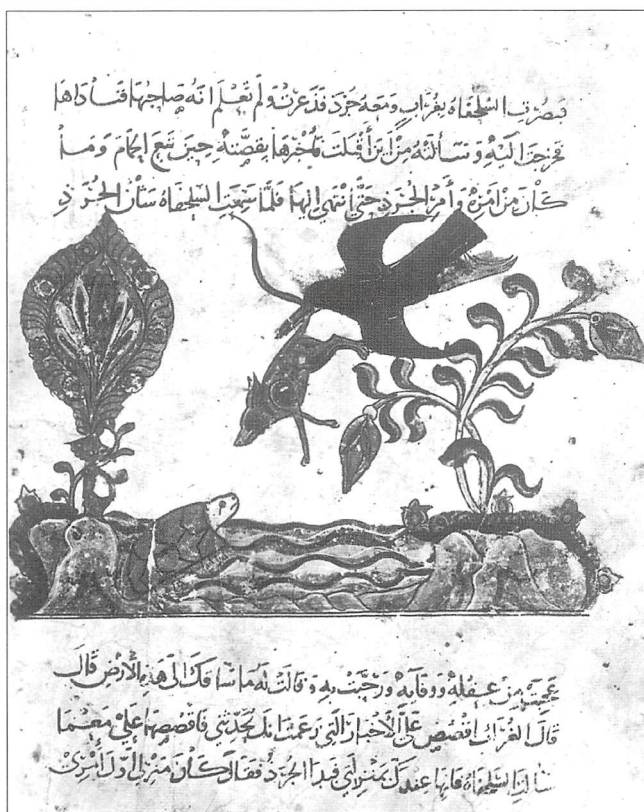 فبصرت السلحفاة بغراب ومعه جرذ فذعرت ولم تعلم انه صاحبها فناداها
فخرجت اليه وسألته من اين أقبلت فأخبرها بقصته حين تبع الحمام وما
كان من امره وأمر الجرذ حتى انتهى إليها فلما سمعت السلحفاة شأن الجرذ
عجبت من عقله ووفايه ورحبت به وقالت له ما ساقك الى هذه الأرض قال
قال الغراب اقصص علي الأخبار التي زعمت انك تحدثني فاقصصها علي مع ما
سألت السلحفاة فانها عندك بمنزلتي فبدا الجرذ فقال كان منزلي أول أمري